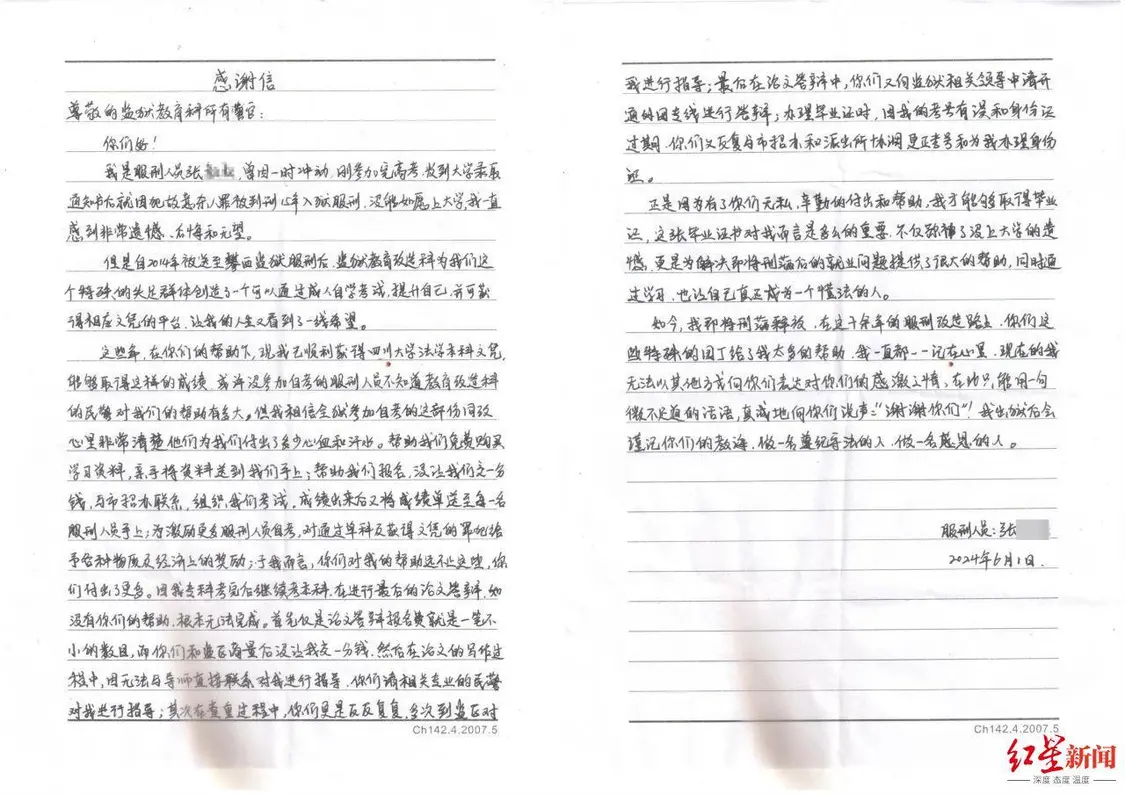 感谢信
尊敬的监狱教育科所有警官：
你们好！
我是服刑人员张 ，曾因一时冲动，刚参加完高考，收到大学录取
通知书后就因犯故意杀人罪被判刑 入狱服刑，没能如愿上大学，我一直
感到非常遗憾、后悔和无望。
但是自2014年被送至攀西监狱服刑后，监狱教育改造科为我们这
个特殊的失足群体创造了一个可以通过成人自学考试，提升自己，并可获
得相应文凭的平台，让我的人生又看到了一线希望。
这些年，在你们的帮助下，现我已顺利获得四川大学法学本科文凭，
能够取得这样的成绩，或许没参加自考的服刑人员不知道教育改造科
的民警对我们的帮助有多大。但我相信全狱参加自考的这部份同改
心里非常清楚他们为我们付出了多少心血和汗水。帮助我们免费购买
学习资料，亲手将资料送到我们手上；帮助我们报名，没让我们交一分
钱，与市招办联系，组织我们考试。成绩出来后又将成绩单送至每一名
服刑人员手上；为激励更多服刑人员自考，对通过单科及获得文凭的罪犯给
予各种物质及经济上的奖励；于我而言，你们对我的帮助远不止这些，你
们付出了更多。因我专科考完后继续考本科，在进行最后的论文答辩，如
没有你们的帮助，根本无法完成。首先仅是论文答辩报名费就是一笔不
小的数目，而你们和监区商量后没让我交一分钱。然后在论文的写作过
程中，因无法与导师直接联系对我进行指导，你们请相关专业的民警
对我进行指导；其次在查重过程中，你们更是反反复复，多次到监区对
Ch142.4.2007.5
我进行指导；最后在论文答辩中，你们又向监狱相关领导申请开
通外网专线进行答辩；办理毕业证时，因我的考号有误和身份证
过期，你们又反复与市招办和派出所协调更正考号和为我办理身份
证。
正是因为有了你们无私、辛勤的付出和帮助，我才能够取得毕业
证，这张毕业证书对我而言是多么的重要，不仅弥补了没上大学的遗
憾，更是为解决即将刑满后的就业问题提供了很大的帮助，同时通
过学习，也让自己真正成为一个懂法的人。
如今，我即将刑满释放，在这十余年的服刑改造路上，你们这
些特殊的园丁给了我太多的帮助，我一直都一一记在心里，现在的我
无法以其他方式向你们表达对你们的感激之情，在此只能用一句
微不足道的话语，真诚地向你们说声：“谢谢你们”！我出狱后会
谨记你们的教诲，做一名遵纪守法的人，做一名感恩的人。
服刑人员：张
2024年6月1日.
Ch142.4.2007.5
红星新闻
深度 态度 温度